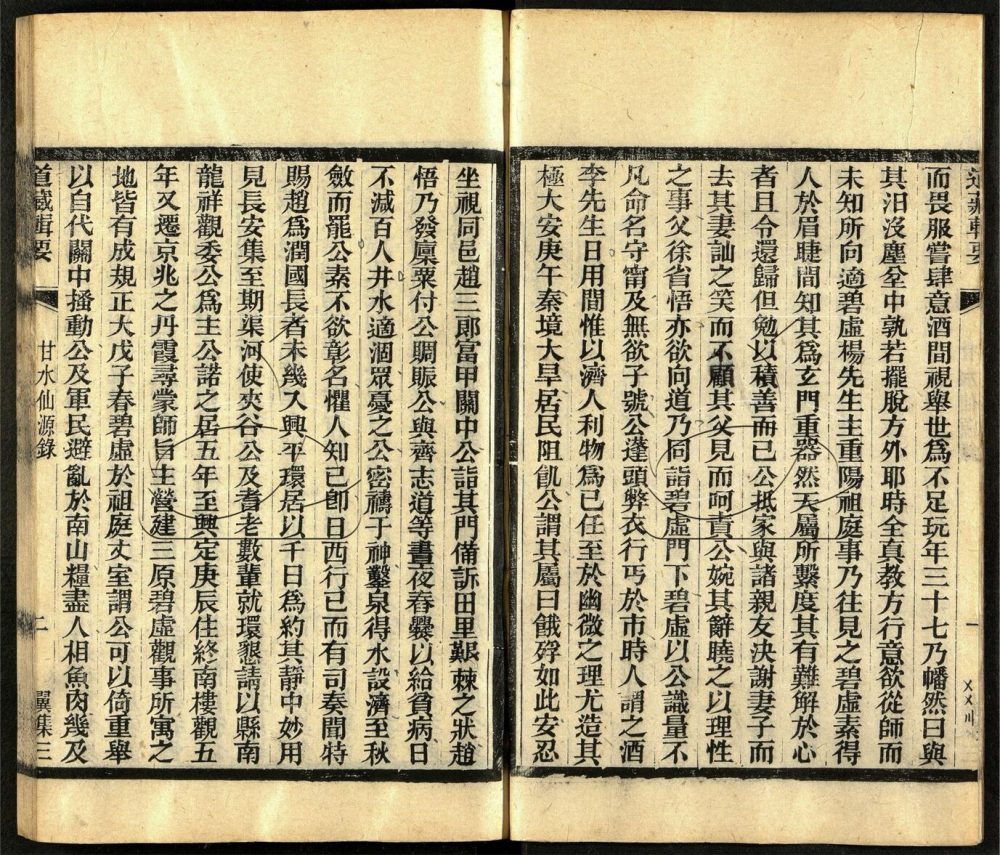 道藏輯要
一
而畏服嘗肆意酒間視舉世爲不足玩年三十七乃幡然曰與
其汨沒塵坌中孰若擺脫方外耶時全真教方行意欲從師而
未知所向適碧虛楊先生主重陽祖庭事乃往見之碧虛素得
人於眉睫間知其爲玄門重器然天屬所繫度其有難解於心
者且令還歸但勉以積善而已公抵家與諸親友決謝妻子而
去其妻訕之笑而不顧其父見而呵責公婉其辭曉之以理性
之事父徐省悟亦欲向道乃同詣碧虛門下碧虛以公識量不
凡命名守甯及無欲子號公蓬頭弊衣行丐於市時人謂之酒
李先生日用間惟以濟人利物爲已任至於幽微之理尤造其
極大安庚午秦境大旱居民阻飢公謂其屬曰餓殍如此安忍
坐視同邑趙三郎富甲關中公詣其門備訴田里艱棘之狀趙
悟乃發廩粟付公賙賑公與齊志道等晝夜舂爨以給貧病日
不減百人井水適涸眾憂之公密禱于神鑿泉得水設濟至秋
斂而罷公素不欲彰名懼人知已卽日西行已而有司奏聞特
賜趙爲潤國長者未幾入興平環居以千日爲約其靜中妙用
見長安集至期渠河使夾谷公及耆老數輩就環懇請以縣南
龍祥觀委公爲主公諾之居五年至興定庚辰住終南樓觀五
年又遷京兆之丹霞尋蒙師旨主營建三原碧虛觀事所寓之
地皆有成規正大戊子春碧虛於祖庭丈室謂公可以倚重舉
以自代關中搔動公及軍民避亂於南山糧盡人相魚肉幾及
道藏輯要
甘水仙源錄
二
翼集三